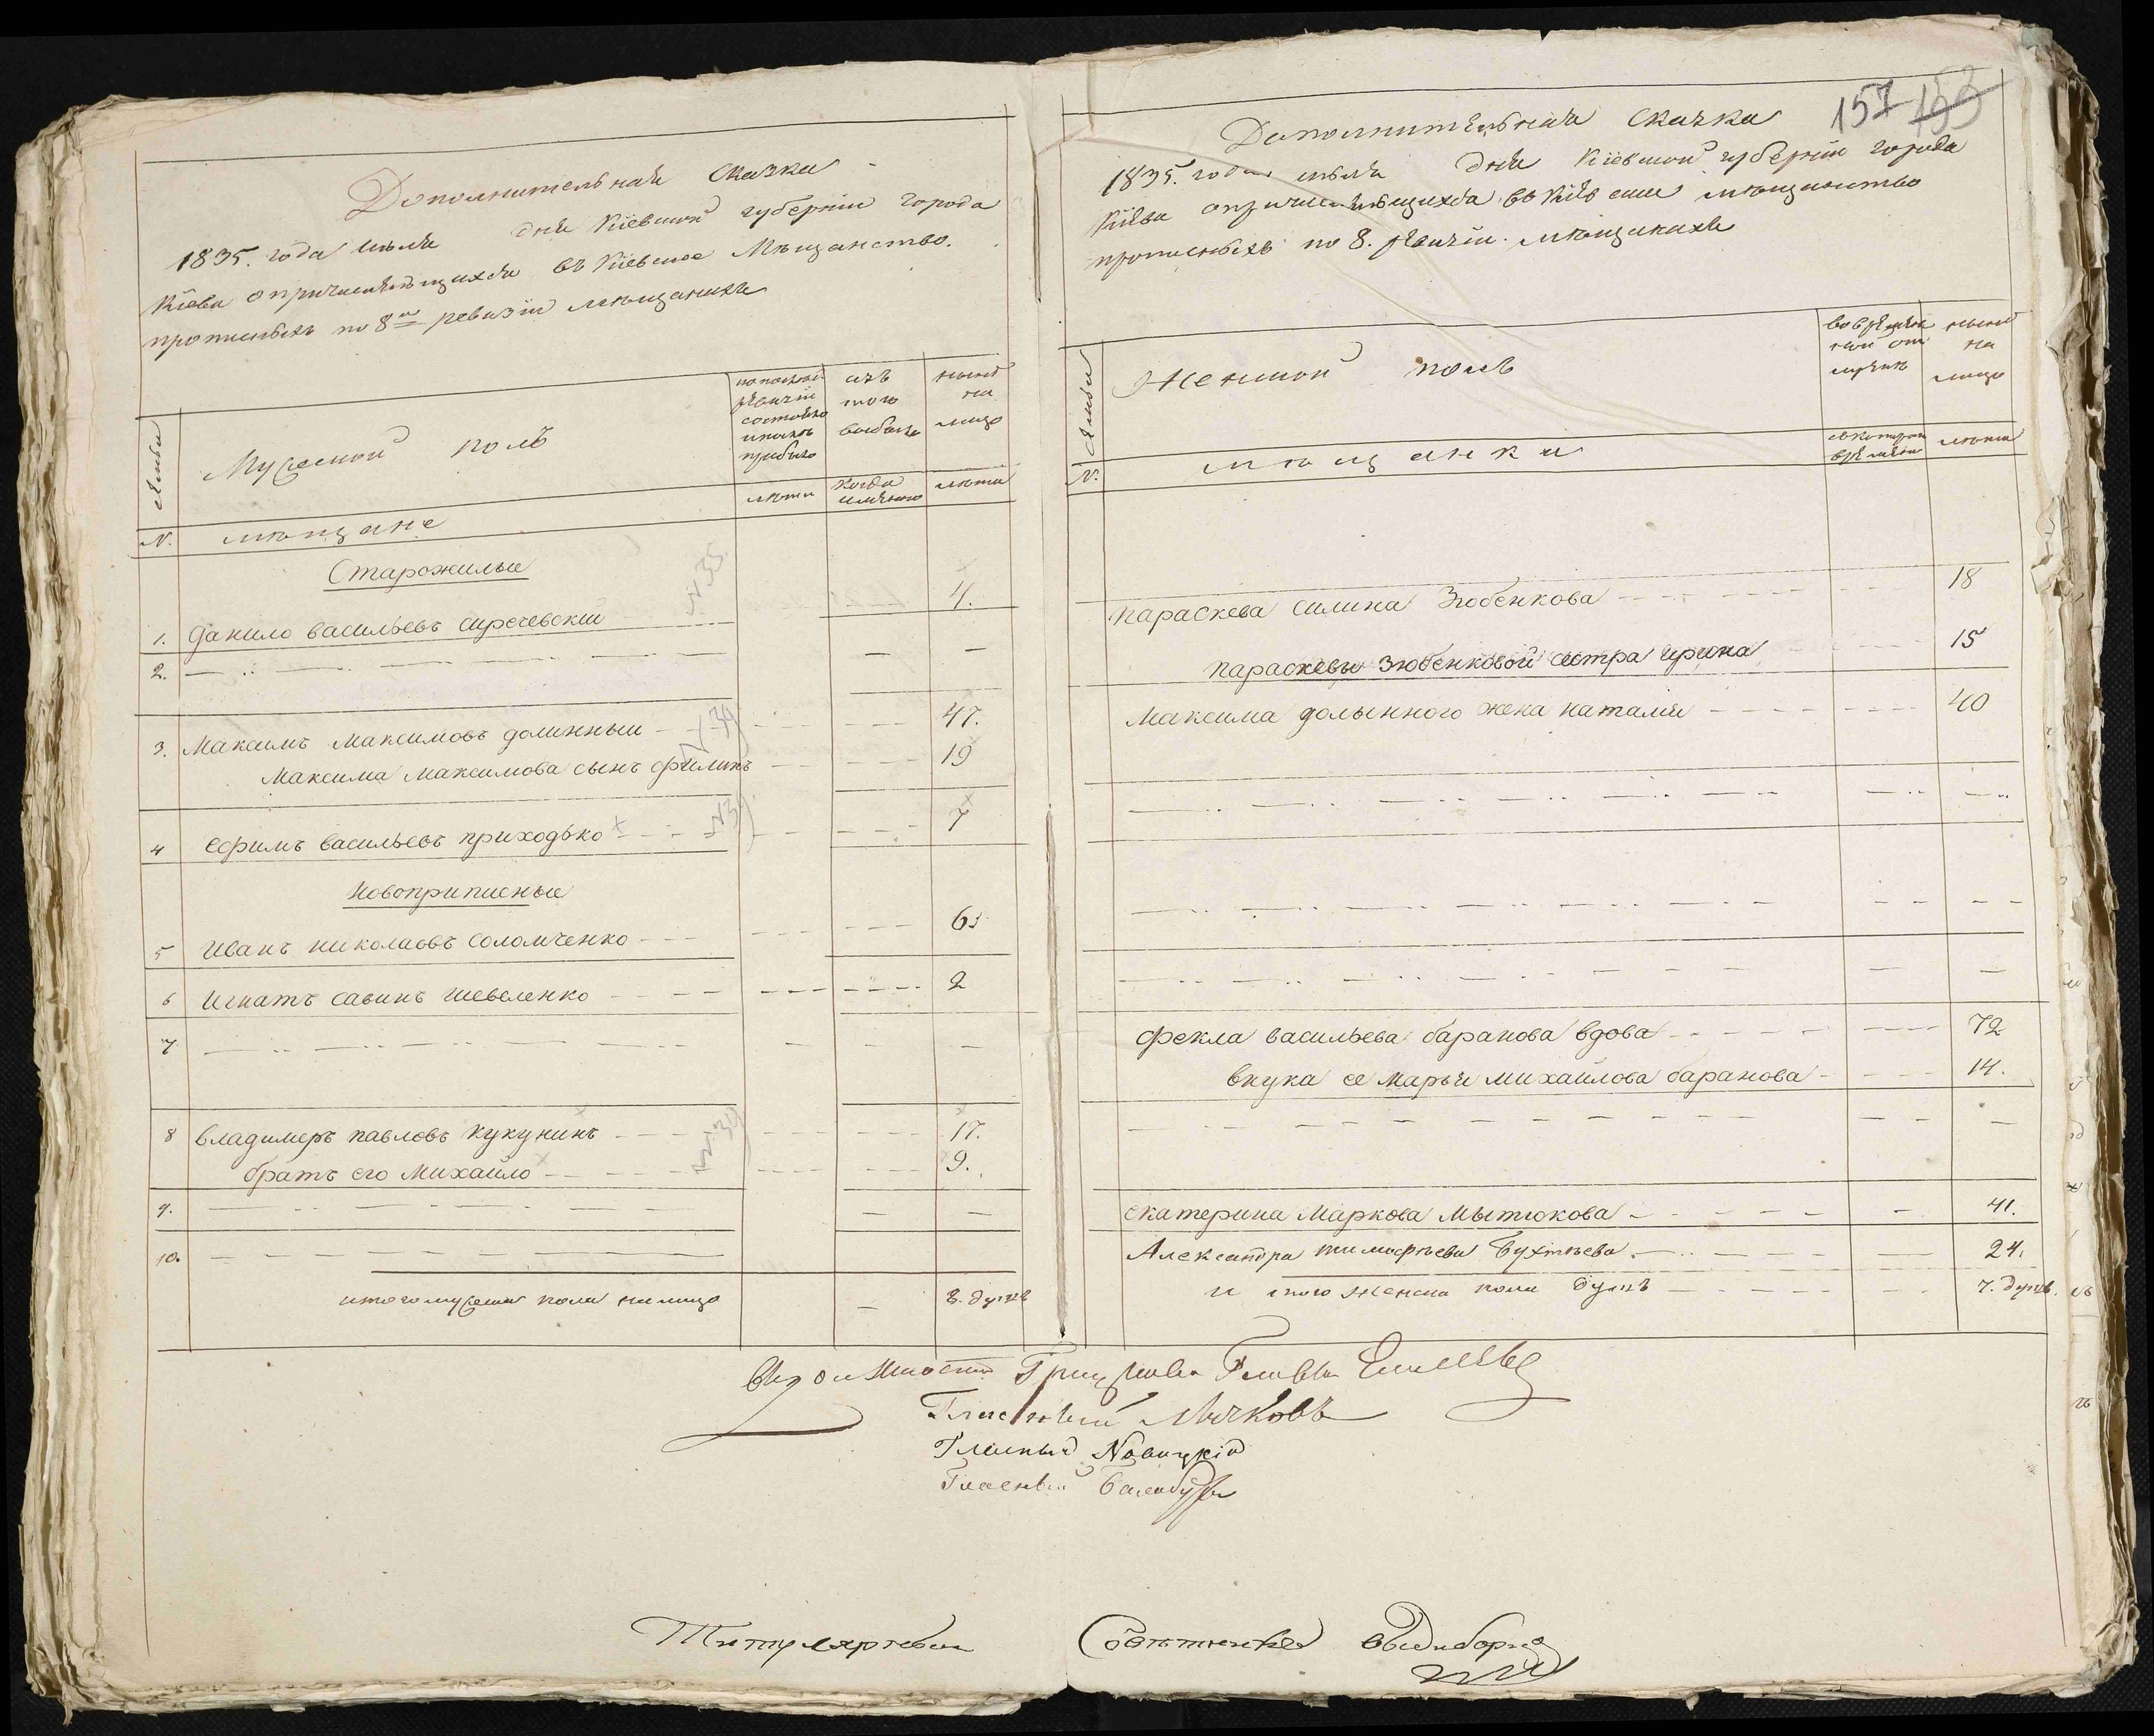 Дополнительная Сказка
1835. года июля дня Кіевской губерніи города
Кіева опричисляющихся въ Кіевское Мѣщанство.
прописныхъ по 8ой ревизіи мѣщанихъ
семьи
Мужеской полъ
по послѣд.
ревизіи
состояло
и послѣ
прибыло
изъ
того
выбыло
нынѣ
на
лицо
N.
мѣщане
лѣта
когда
именно
лѣта
Старожилые
1. Данило Васильевъ 4.
2.
3. Максимъ Максимовъ Долинныи 47.
Максима Максимова сынъ Филипъ 19
4 Ефимъ Васильевъ Приходько 7
Новоприписные
5 Иванъ Николаовъ Соломченко
6 Игнатъ Савинъ Шевеленко 2
7
8 Владимеръ Павловъ Кукунинъ 17.
братъ его Михайло 9.
9.
10.
итого мужеска пола на лицо 8. душъ
157 153
Дополнительная Сказка
1835. года июля дня Кіевской губерніи города
Кіева опричисляющихся въ Кіевские мѣщанство
прописныхъ по 8. ревизіи. мѣщанахъ
семьи
Женской полъ
во временной отлучкѣ
нынѣ
на
лицо
N.
мѣщанки
съ котораго
времени
лѣта
Параскева Силина Зюбенкова 18
Параскевы Зюбенковой сестра Ирина 15
Максима Долынного жена Наталия 40
Фекла Васильева Баранова вдова 72
внука ее Марья Михайлова Баранова 14.
Екатерина Маркова Мытюкова 41.
Александра Тимофѣева Бухтѣева 24.
и того женска пола душъ 7. душъ.
Гласный
Гласный Новицкій
Гласный Балабуха
Титулярный Совѣтникъ